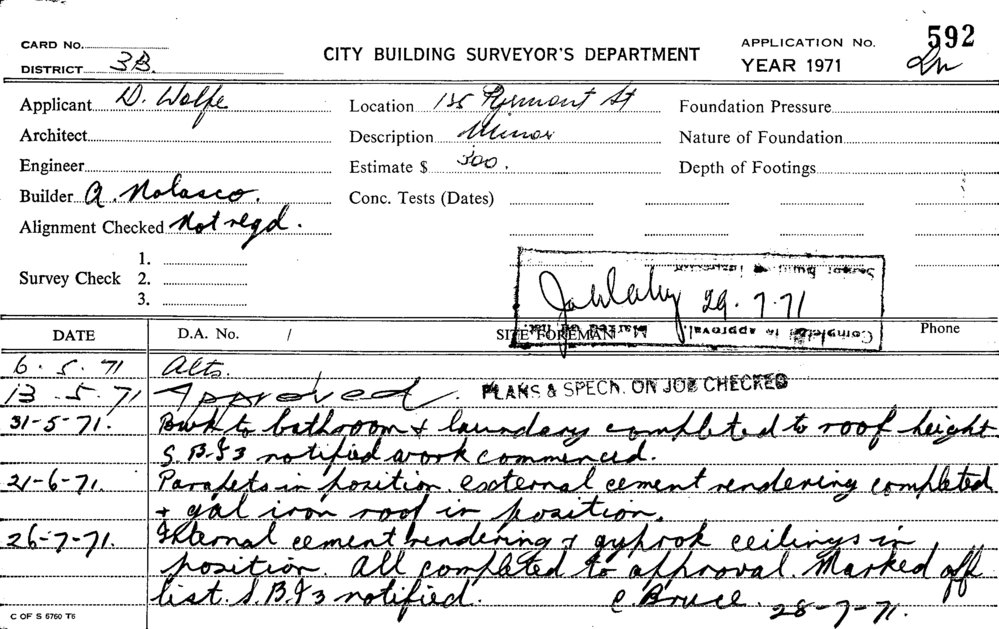 CARD No.
DISTRICT 3B.
CITY BUILDING SURVEYOR'S DEPARTMENT
APPLICATION No. 592
YEAR 1971
Applicant D. Wolfe
Location 135 Pyrmont St
Foundation Pressure
Architect
Description Minor
Nature of Foundation
Engineer
Estimate $ 300.
Depth of Footings
Builder A. Nolasco.
Conc. Tests (Dates)
Alignment Checked Not regd.
Survey Check
1.
2.
3.
29.7.71
Completed to approval. Marked off list.
Senior Building Inspector
DATE
D.A. No. /
SITE FOREMAN
Phone
6.5.71 Alts.
13.5.71 Approved. PLANS & SPECN. ON JOB CHECKED
31-5-71. Bwk to bathroom & laundary completed to roof height
S.B.I3 notified work commenced.
21-6-71. Parapets in position, external cement rendering completed
+ gal iron roof in position.
26-7-71. Internal cement rendering & gyprok ceilings in
position. All completed to approval. Marked off
list. S.B.I3 notified. C. Bruce. 28-7-71.
C OF S 6760 T6